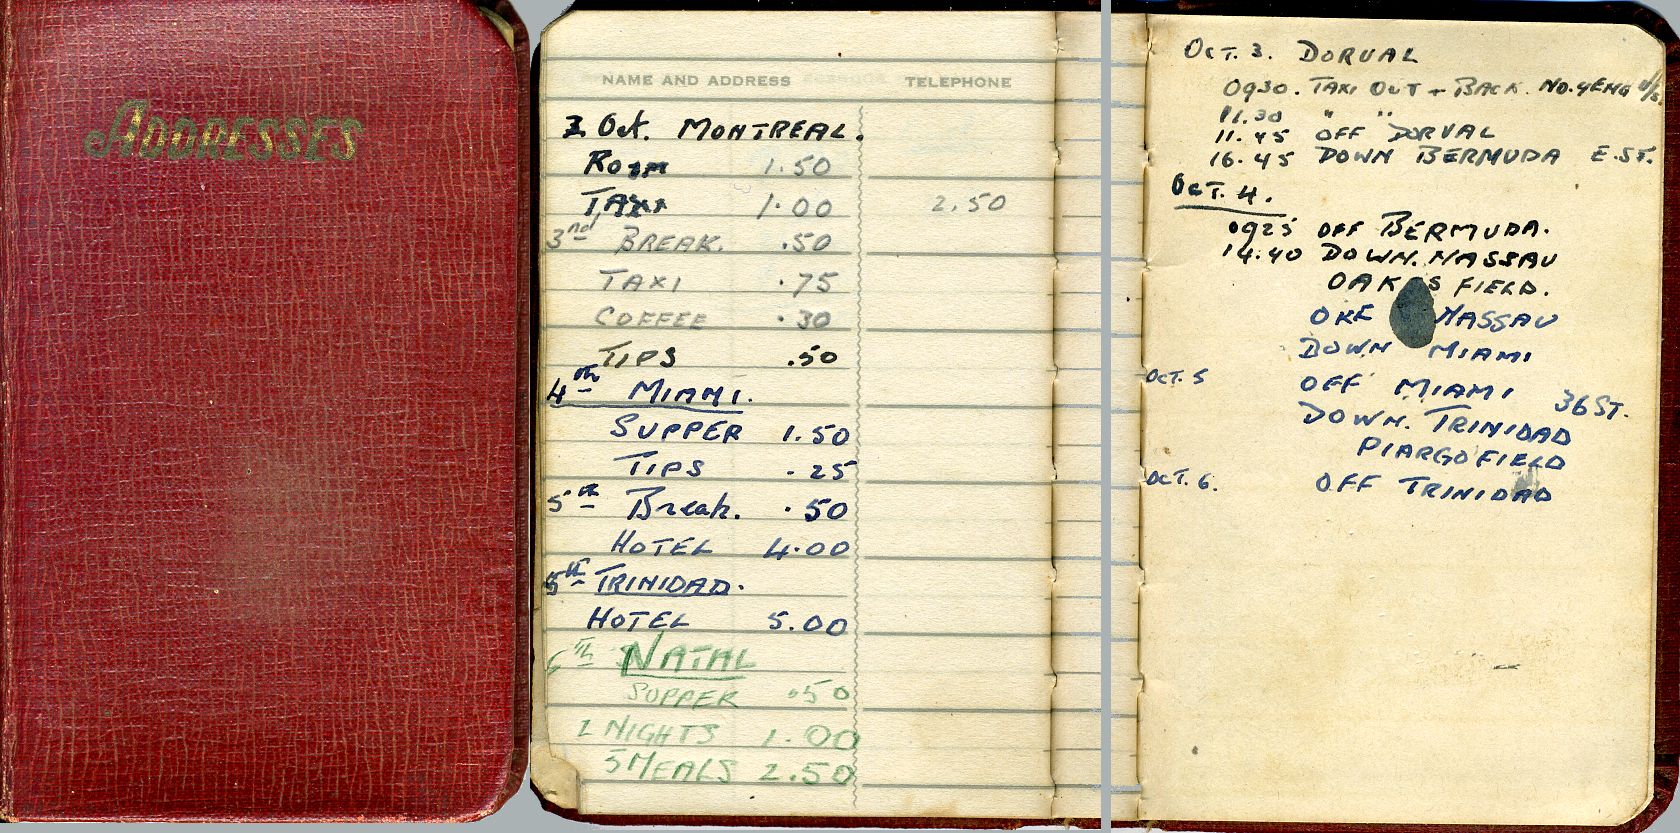 ADDRESSES
NAME AND ADDRESS TELEPHONE
2 Oct. MONTREAL.
ROOM 1.50
TAXI 1.00 2.50
3rd BREAK. .50
TAXI .75
COFFEE .30
TIPS .50
4th MIAMI.
SUPPER 1.50
TIPS .25
5th Break. .50
HOTEL 4.00
5th TRINIDAD.
HOTEL 5.00
6th NATAL
SUPPER .50
2 NIGHTS 1.00
5 MEALS 2.50
OCT. 3. DORVAL
0930. TAXI OUT + BACK. NO. 4 ENG U/S.
11.30 " "
11.45 OFF DORVAL
16.45 DOWN BERMUDA E.S.T.
OCT. 4.
0925 OFF BERMUDA.
14.40 DOWN. NASSAU
OAKES FIELD.
OFF NASSAU
DOWN MIAMI
OCT. 5 OFF MIAMI 36 ST.
DOWN. TRINIDAD
PIARGO FIELD
OCT. 6. OFF TRINIDAD